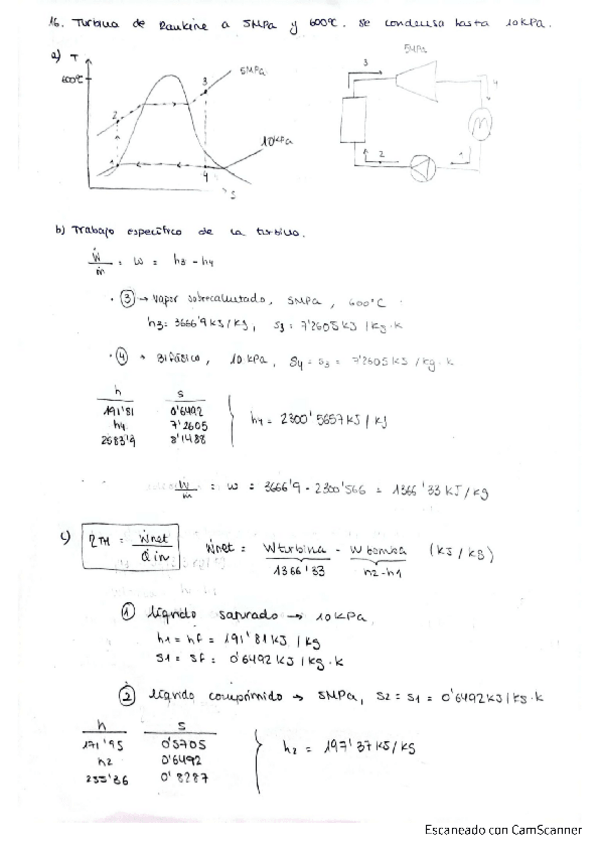 16. Turbina de Rankine a 5MPa y 600°C. se condensa hasta 10KPa.
a) T
600°C
5MPa
10KPa
1
2
3
4
s
5MPa
3
4
4
2
1
M
b) Trabajo específico de la turbina.
Ẇ/ṁ = w = h3 - h4
· ③ → Vapor sobrecalentado, 5MPa, 600°C
h3 = 3666'9 KJ/Kg, s3 = 7'2605 KJ/Kg·K
· ④ → Bifásico, 10KPa, s4 = s3 = 7'2605 KJ/Kg·K
h s
191'81 0'6492
h4 7'2605
2583'9 8'1488
h4 = 2300'5657 KJ/Kg
Ẇ/ṁ = w = 3666'9 - 2300'566 = 1366'33 KJ/Kg
c) ηTH = Ẇnet / Q̇in
Ẇnet = Wturbina - Wbomba (KJ/KG)
1366'33 h2-h1
① líquido saturado → 10KPa
h1 = hf = 191'81 KJ/Kg
s1 = sf = 0'6492 KJ/Kg·K
② líquido comprimido → 5MPa, s2 = s1 = 0'6492 KJ/Kg·K
h s
171'95 0'5705
h2 0'6492
255'36 0'8287
h2 = 197'37 KJ/KG
Escaneado con CamScanner